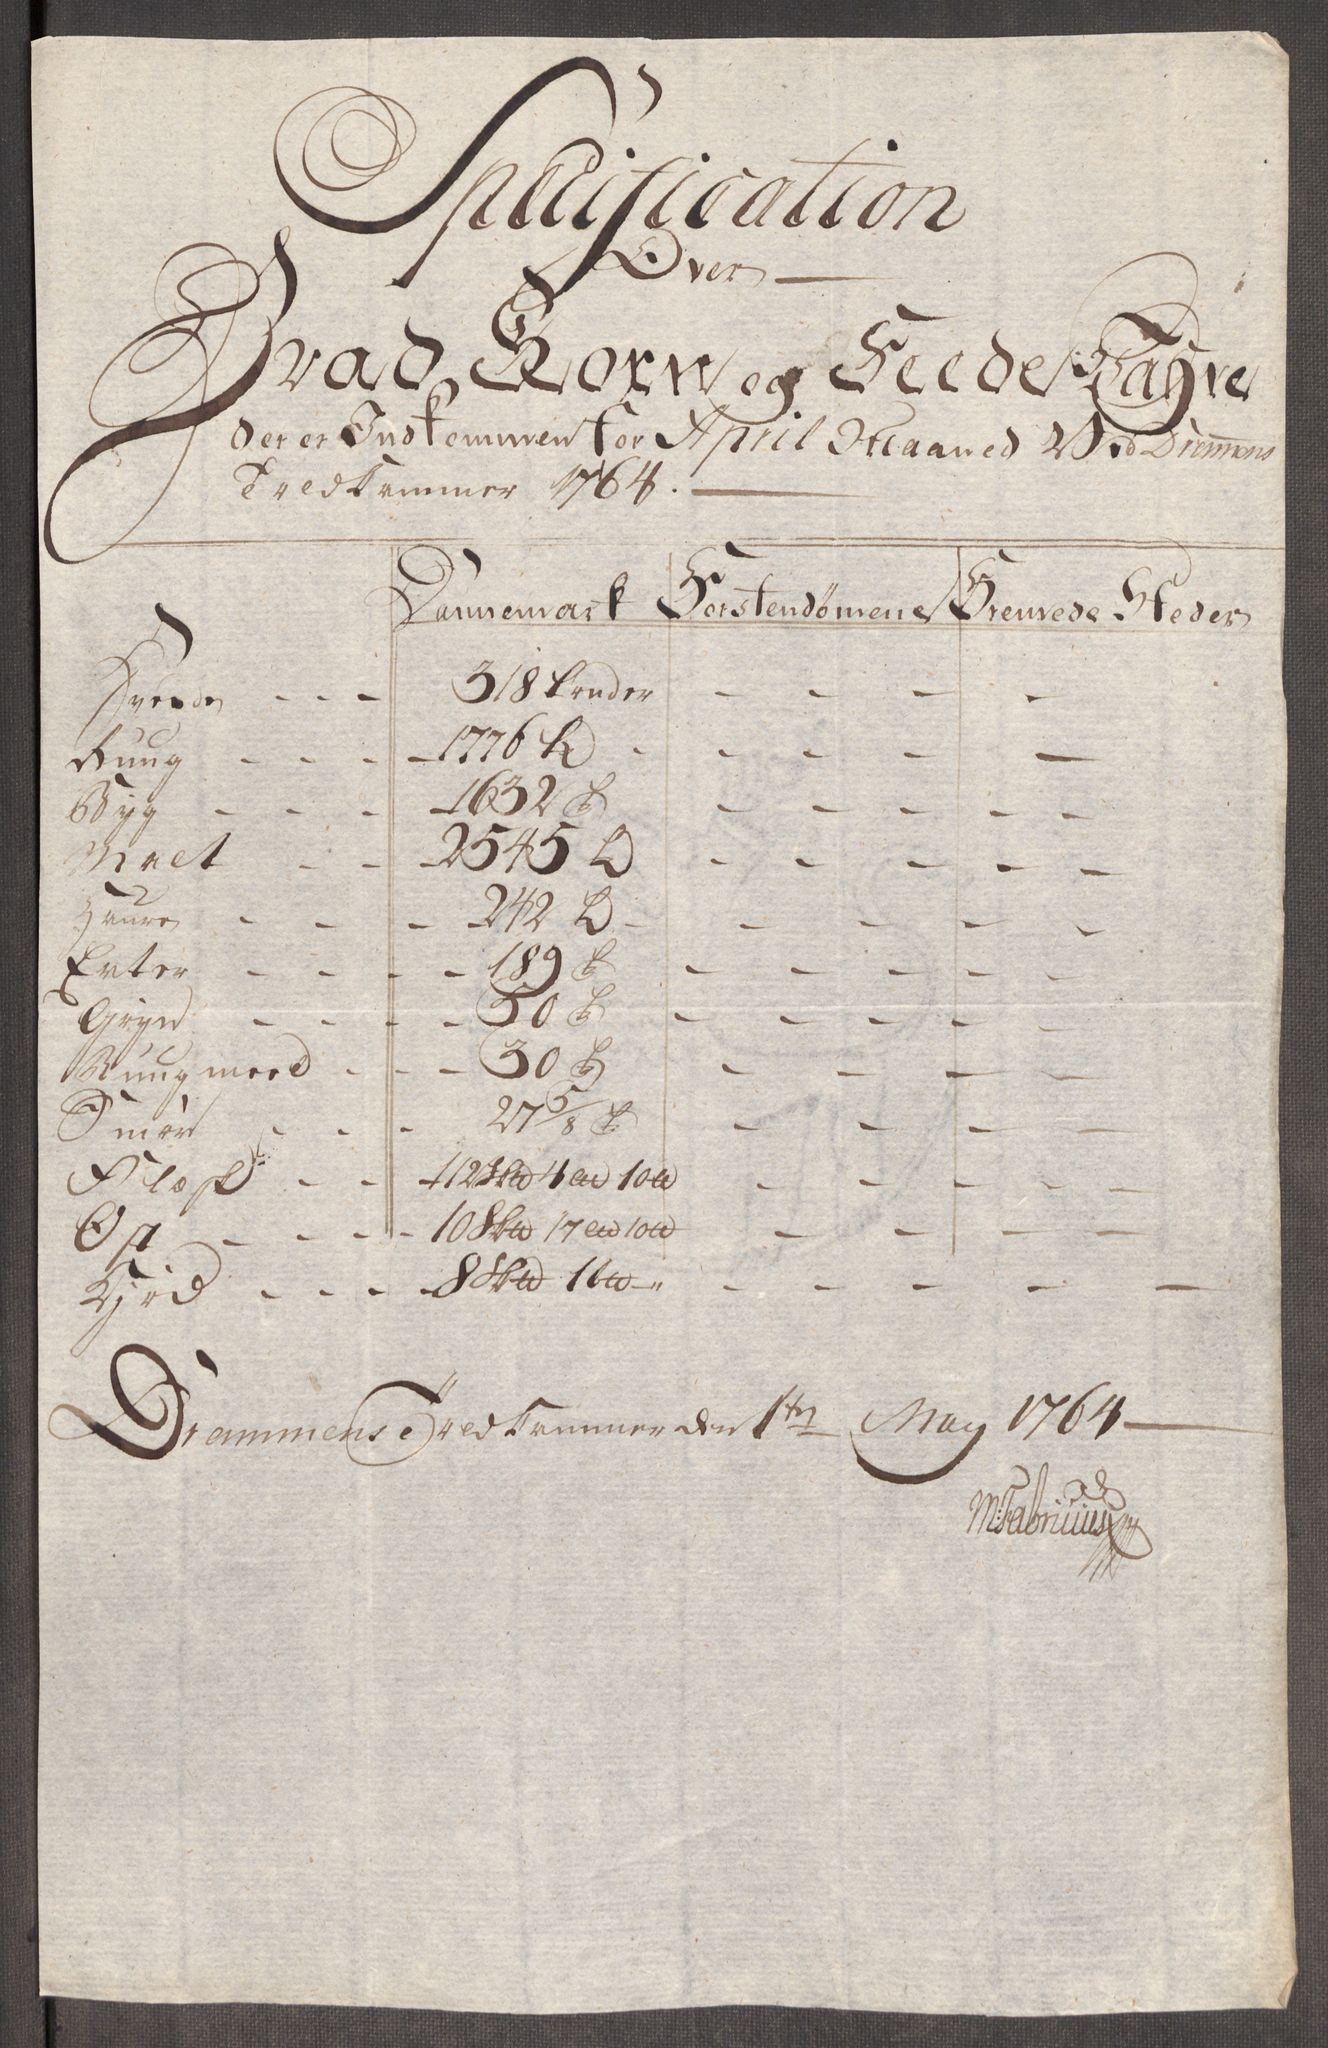 Specification
Over
Hvad Korn og Feede Vahre
der er Indkommen for April Maaned Ved Dramens
Toldkammer 1764.
Dannemark Förstendömene Fremede Steder
Hvede - - - 318 tønder - - - -
Rug - - - - 1776 t - - - - -
Byg - - - 1632 t - - - - -
Malt - - - 2545 t - - - - -
Haure - - - - 242 t - - - - - -
Erter - - - - 189 t - - - - -
Gryn - - - - 50 t - - - - -
Rugmeel - - - 30 t - - - -
Smör - - - 27 5/8 t - - - -
Flæsk - - - 112 Sk℔ 4 L℔ 10 ℔ - - - - -
Ost - - - - 10 Sk℔ 17 L℔ 10 ℔ - - - -
Kjöd - - - - 8 Sk℔ 1 L℔ - - - - - -
Drammens Toldkammer den 1ten May 1764
M: Fabricius